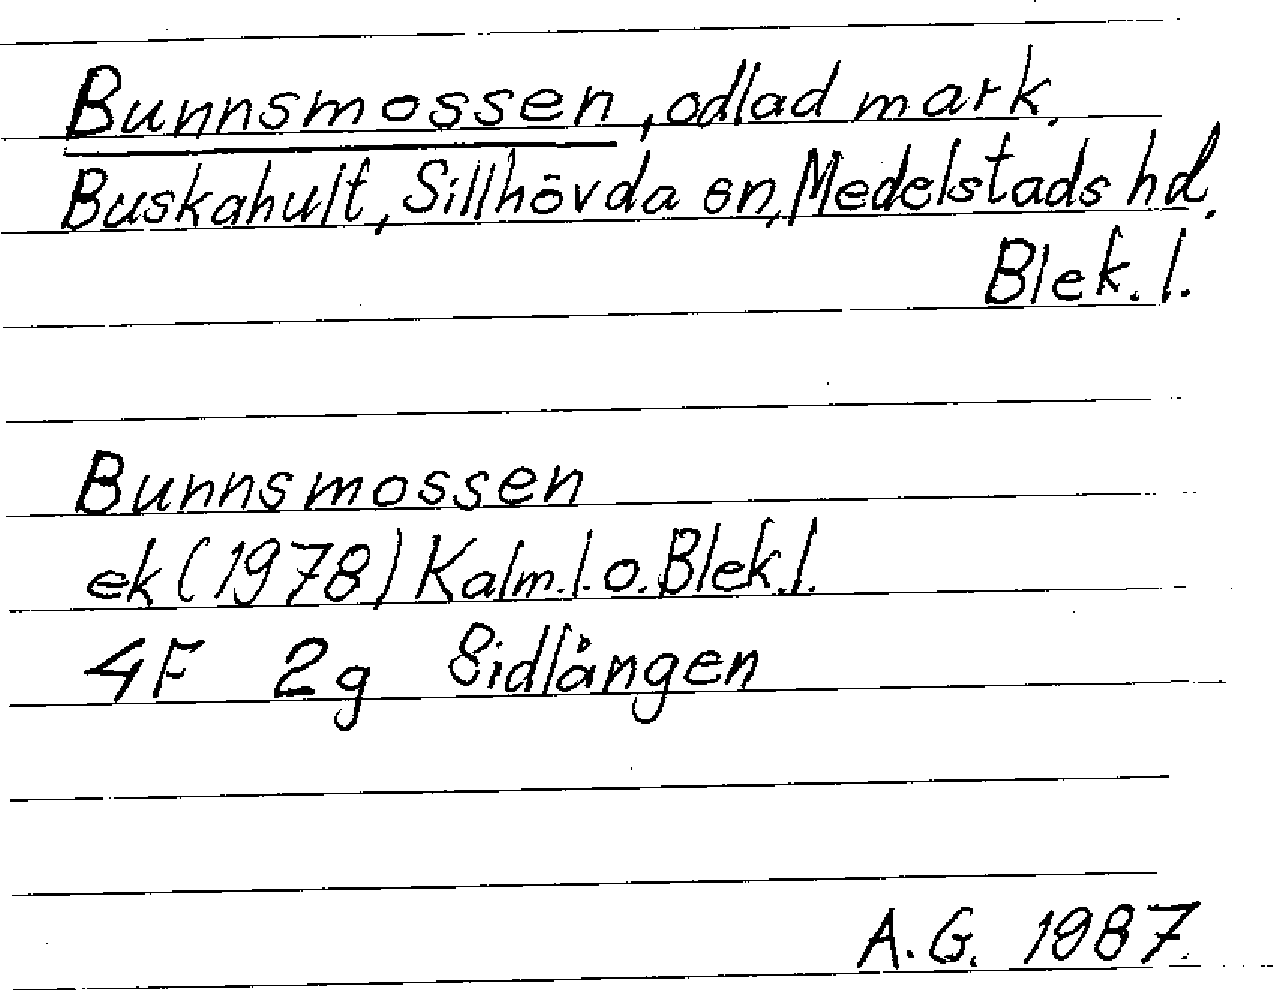 Bunnsmossen, odlad mark.
Buskahult, Sillhövda sn, Medelstads hd.
Blek. l.
Bunnsmossen
ek (1978) Kalm. l. o. Blek. l.
4F 2g Sidlången
A. G. 1987.